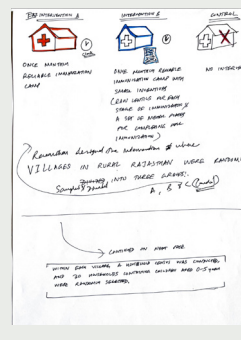 INTERVENTION A
INTERVENTION B
CONTROL
ONCE MONTHLY
RELIABLE IMMUNISATION
CAMP
ONCE MONTHLY RELIABLE
IMMUNISATION CAMP WITH
SMALL INCENTIVES
(RAW LENTILS FOR EACH
STAGE OF IMMUNISATION &
A SET OF METAL PLATES
FOR COMPLETING
IMMUNISATION)
NO
Researchers designed the intervention where
VILLAGES IN RURAL RAJASTHAN WERE
Sampled INTO THREE GROUPS.
A, B & C (Control)
CONTINUED ON NEXT PAGE
WITHIN EACH VILLAGE A HOUSEHOLD CENSUS WAS CONDUCTED,
AND 30 HOUSEHOLDS CONTAINING CHILDREN AGED 0-5 years
WERE RANDOMLY SELECTED.